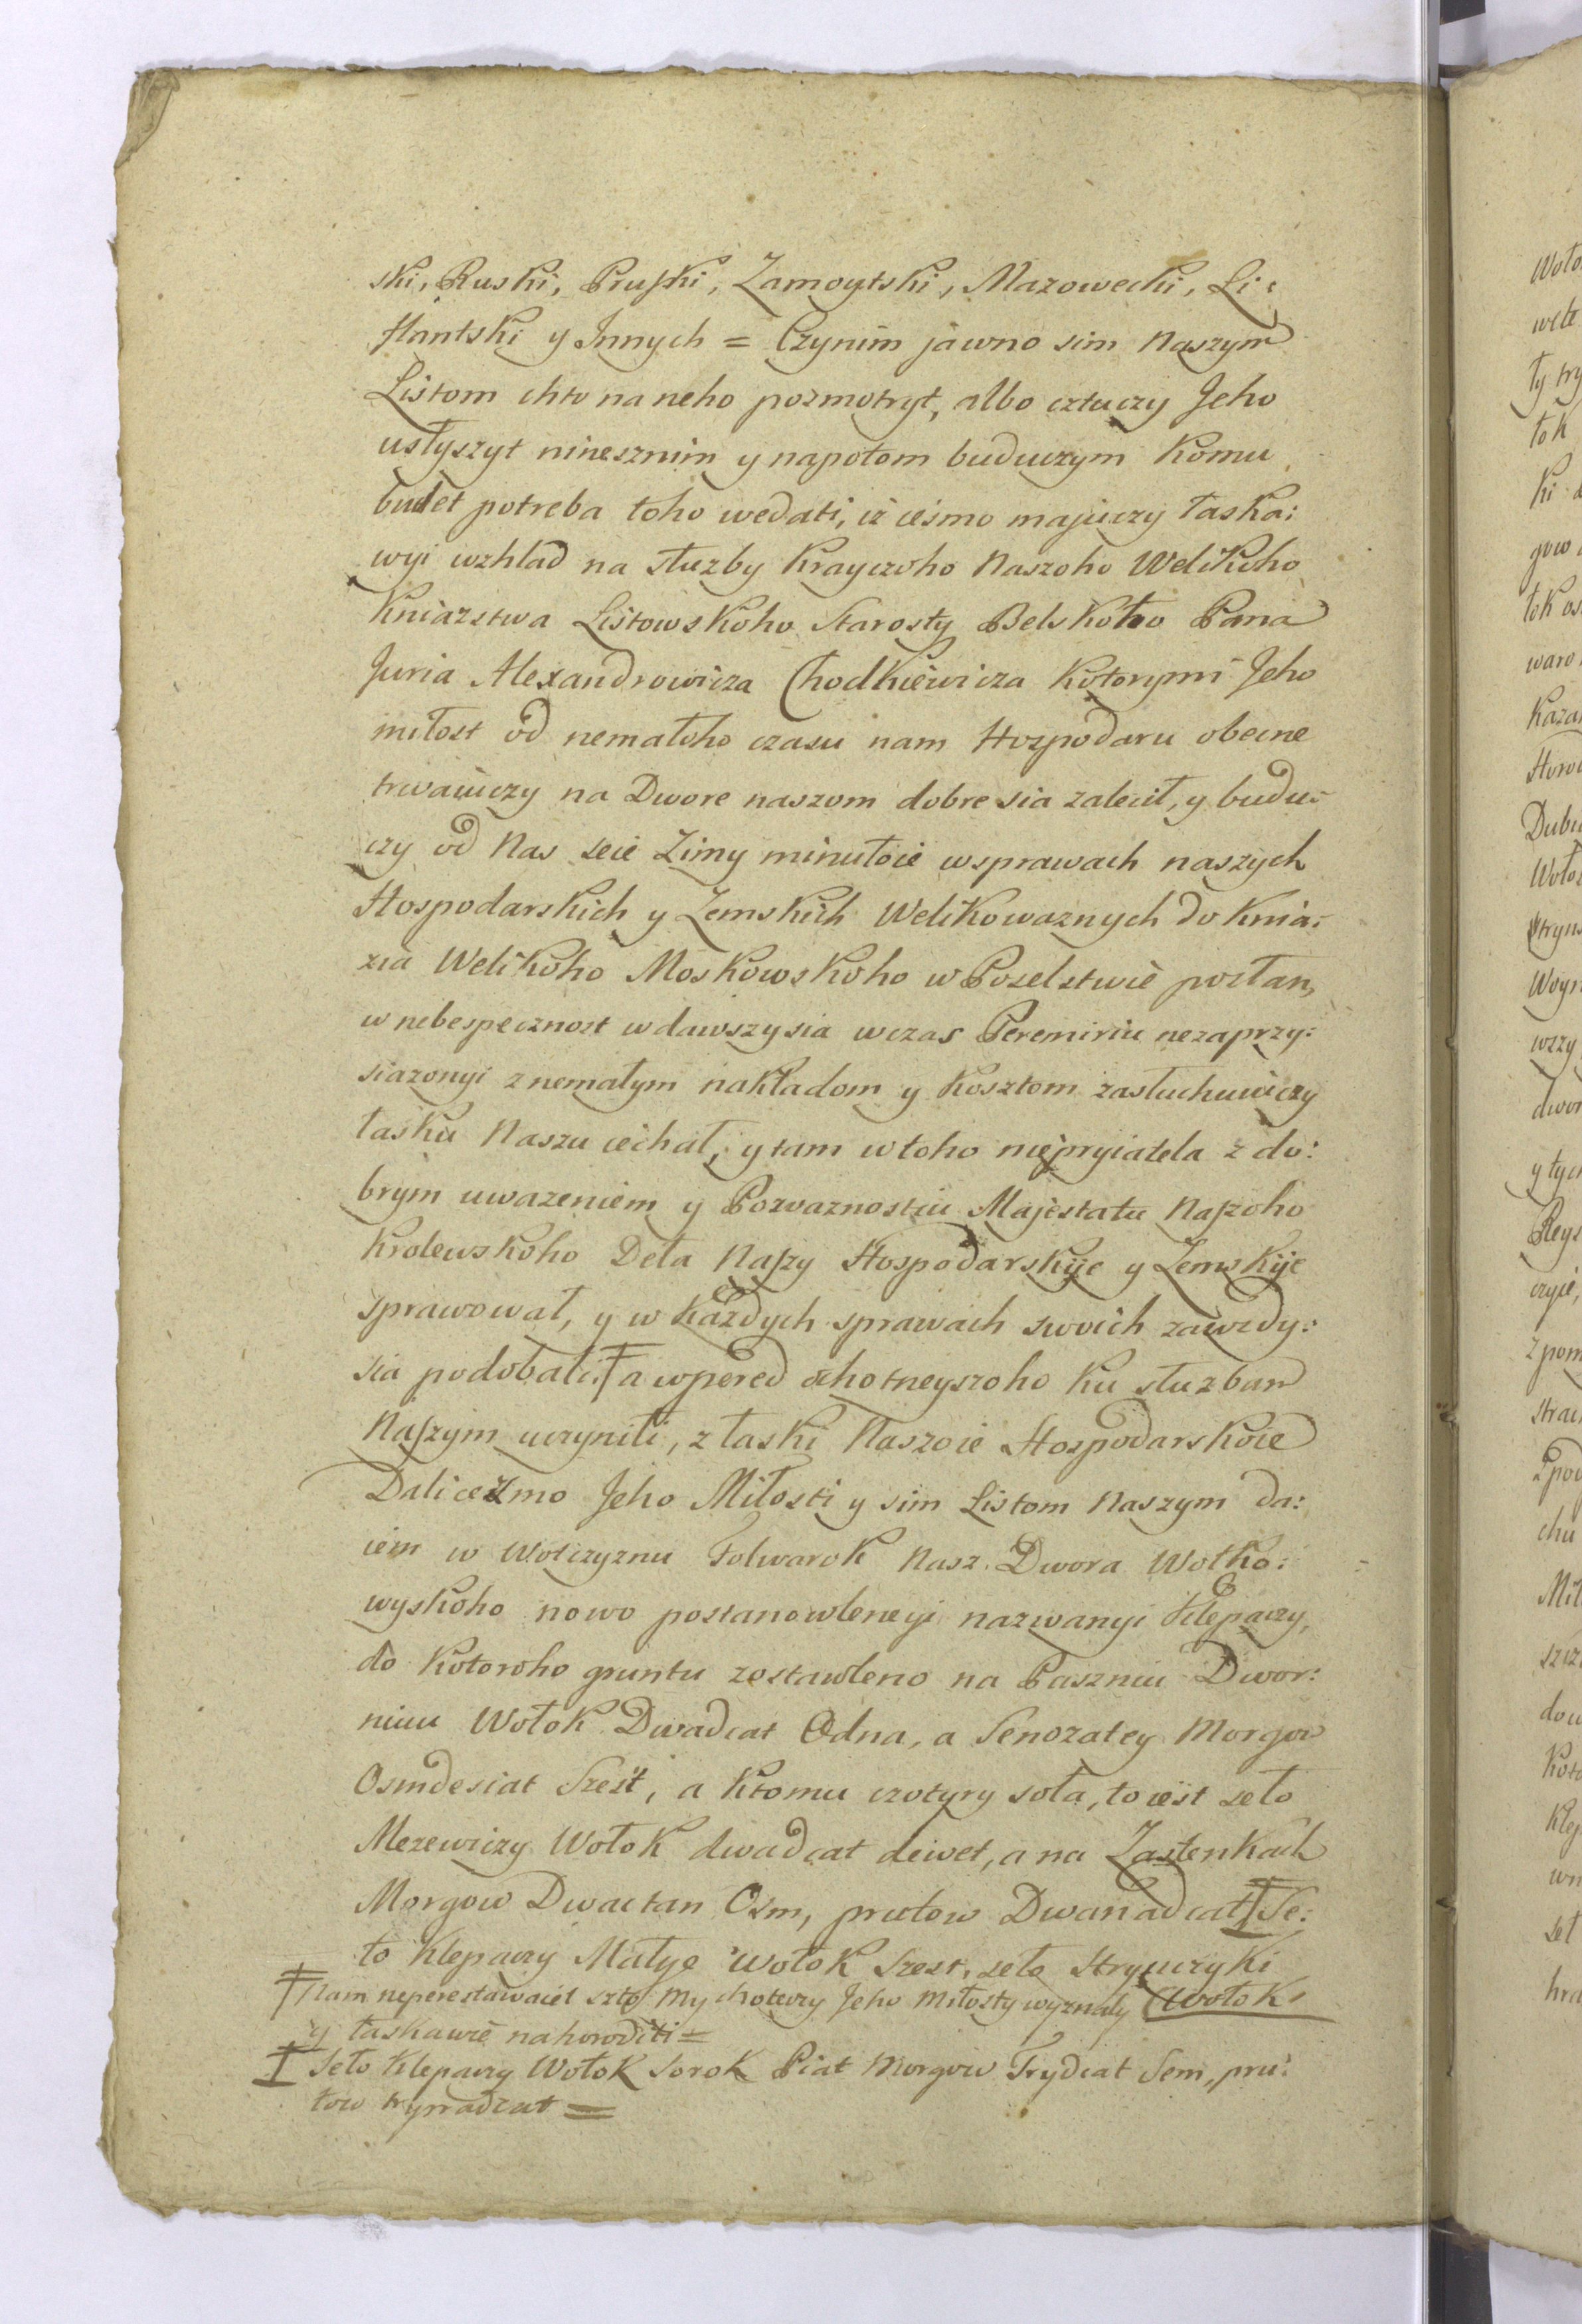 ski, Ruski, Pruſski, Zamoytski, Mazowecki, Li:
flantski y Innych = Czynim jawno sim Naszym
Listom chto na neho posmotryt, albo cztuczy Jeho
usłyszyt ninesznim y napotom buduczym Komu
budet potreba toho wedati, iż ieśmo majuczy łaska:
wyi wzhlad na służby Krayczoho Naszoho Welikoho
Kniazstwa Litowskoho Starosty Belskoho Pana
Juria Alexandrowicza Chodkiewicza Kotorymi Jeho
miłost od nemałoho czasu nam Hospodaru obecne
trwaiuczy na Dwore naszom dobre sia zalecił, y budu-
czy od Nas seie Zimy minułoie w sprawach naszych
Hospodarskich y Zemskich Welikowaznych do Knia:
zia Welikoho Moskowskoho w Poselstwie posłan,
w nebespecznost wdawszysia wczas Peremiriu nezaprzy:
siazonyi z nemałym nakładom y Kosztom zasłuchuwiczy
łasku Naszu iechał, y tam w toho nieprijatela z do:
brym uwazeniem y Powaznostiu Majestatu Naſzoho
Krolewskoho Deła Naſzy Hospodarskije y Zemskije
sprawował, y w Każdych sprawach swoich zawzdy:
sia podobati ╪ a wpered ochotneyszoho ku służbam
Naſzym uczynili, z łaski Naszoie Hospodarskoie
Dali ieśmo Jeho Miłosti y sim Listom Naszym da:
iem w Wotczyznu Folwarok Nasz Dwora Wołko:
wyskoho nowo postanowlenyi nazwanyi Klepaczy,
do Kotoroho gruntu zostawleno na Paszniu Dwor:
nuiu Wołok Dwadcat Odna, a Senozatey Morgow
Osmdesiat Szest, a Ktomu czotyry soła, to iest seło
Mezewiczy Wołok dwadcat dewet, a na Zastenkach
Morgow Dwactan Osm, prutow Dwanadcat ╪ Se:
ło Klepaczy Małye Wołok Szest, seło Stryiczyki
╪ Nam neperestawaiet szto My chotuczy Jeho Miłosty wyznaly Wołok
y łaskawie nahorodili =
╪ Seło Klepaczy Wołok Sorok Piat Morgow Trydcat Sem, pru:
tow trynadcat =